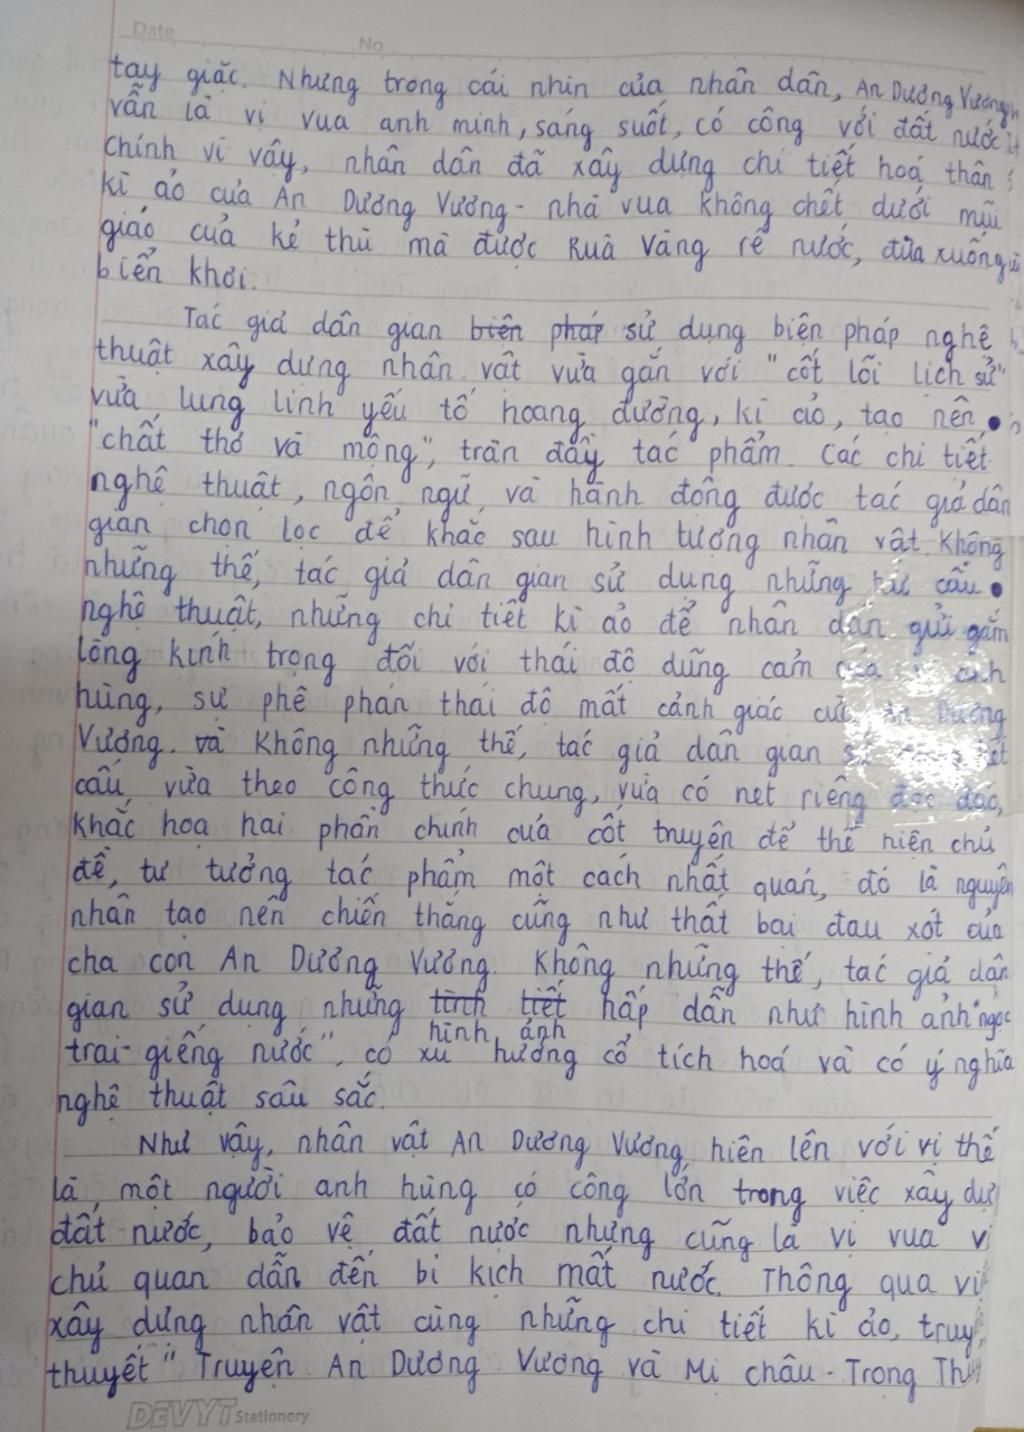 Date No
tay giặc. Nhưng trong cái nhìn của nhân dân, An Dương Vương
vẫn là vị vua anh minh, sáng suốt, có công với đất nước
Chính vì vậy, nhân dân đã xây dựng chi tiết hoá thân
kì ảo của An Dương Vương - nhà vua không chết dưới mũi
giáo của kẻ thù mà được Rùa Vàng rẽ nước, đưa xuống
biển khơi.
Tác giả dân gian biện pháp sử dụng biện pháp nghệ
thuật xây dựng nhân vật vừa gắn với "cốt lõi lịch sử"
vừa lung linh yếu tố hoang đường, kì ảo, tạo nên
"chất thơ và mộng", tràn đầy tác phẩm. Các chi tiết
nghệ thuật, ngôn ngữ và hành động được tác giả dân
gian chọn lọc để khắc sau hình tượng nhân vật. Không
những thế, tác giả dân gian sử dụng những hư cấu
nghệ thuật, những chi tiết kì ảo để nhân dân gửi gắm
lòng kính trọng đối với thái độ dũng cảm của anh
hùng, sự phê phán thái độ mất cảnh giác của An Dương
Vương. và Không những thế, tác giả dân gian
cấu vừa theo công thức chung, vừa có nét riêng độc đáo,
khắc hoạ hai phần chính của cốt truyện để thể hiện chủ
đề, tư tưởng tác phẩm một cách nhất quán, đó là nguyên
nhân tạo nên chiến thắng cũng như thất bại đau xót của
cha con An Dương Vương. Không những thế, tác giả dân
gian sử dụng những tình tiết hấp dẫn như hình ảnh "ngọc
hình ảnh
trai - giếng nước", có xu hướng cổ tích hoá và có ý nghĩa
nghệ thuật sâu sắc.
Như vậy, nhân vật An Dương Vương hiện lên với vị thế
là một người anh hùng có công lớn trong việc xây dự
đất nước, bảo vệ đất nước nhưng cũng là vị vua v
chủ quan dẫn đến bi kịch mất nước. Thông qua vi
xây dựng nhân vật cùng những chi tiết kì ảo, truy
thuyết "Truyện An Dương Vương và Mị Châu - Trọng Thủ
DEVYT Stationery